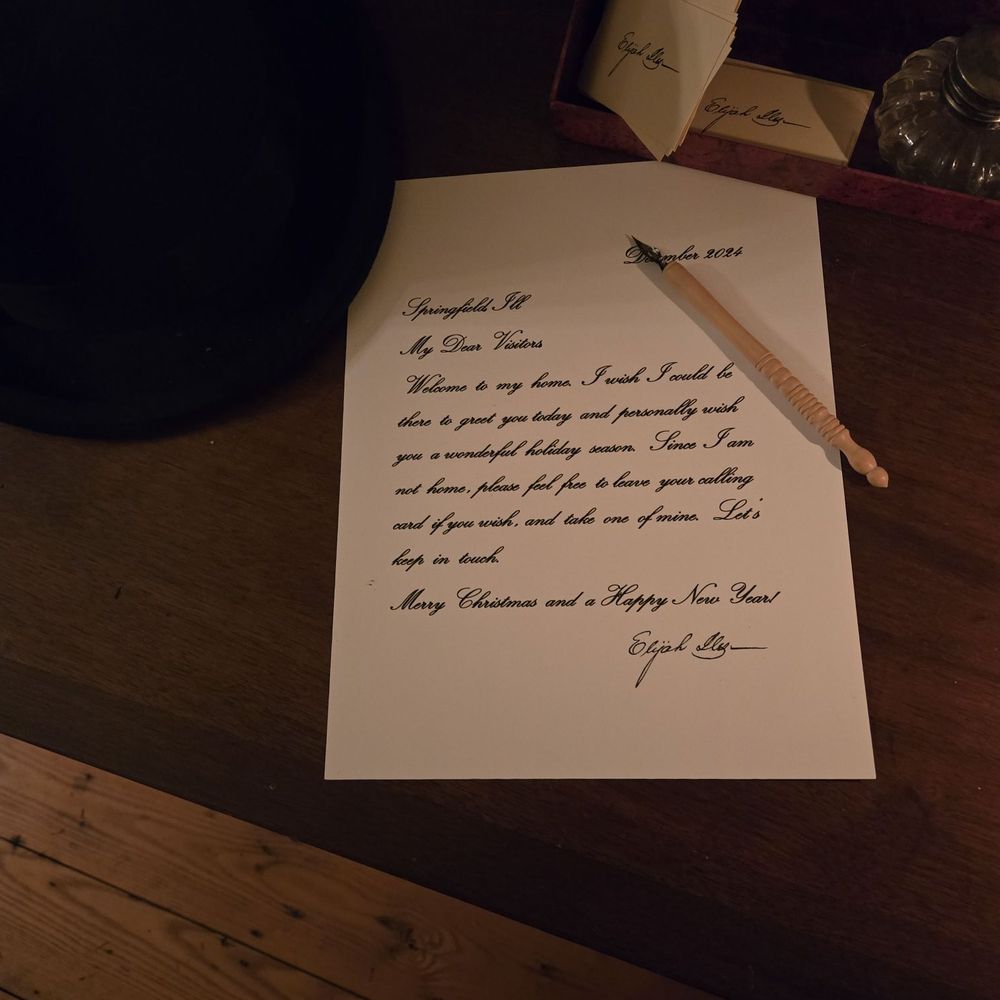 Elijah Iles
Elijah Iles
December 2024
Springfield, Ill
My Dear Visitors
Welcome to my home. I wish I could be
there to greet you today and personally wish
you a wonderful holiday season. Since I am
not home, please feel free to leave your calling
card if you wish, and take one of mine. Let's
keep in touch.
Merry Christmas and a Happy New Year!
Elijah Iles